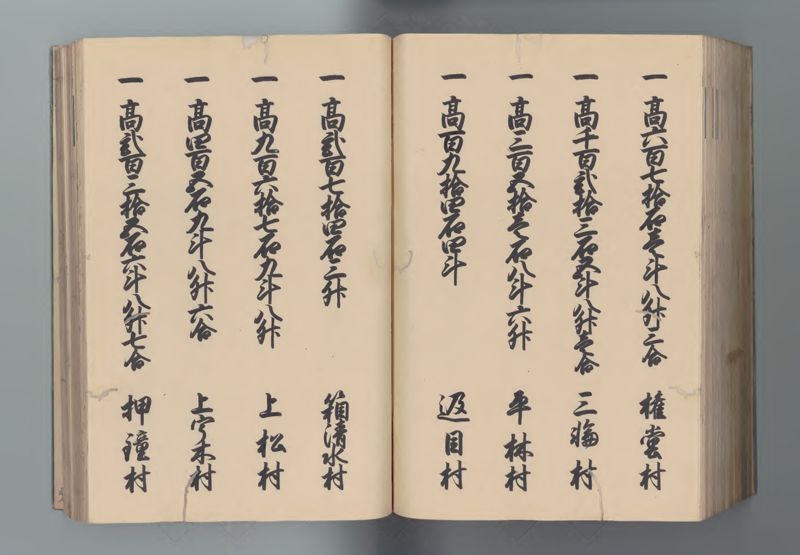 一 高六百七拾石壱斗八升三合 権堂村
一 高千百弐拾三石五斗八升壱合 三輪村
一 高三百五拾壱石八斗六升 平林村
一 高百九拾四石四斗 返目村
一 高弐百七拾四石三升 箱清水村
一 高九百六拾七石九斗八升 上松村
一 高四百五石九斗八升六合 上宇木村
一 高弐百三拾五石六斗八升七合 押鐘村